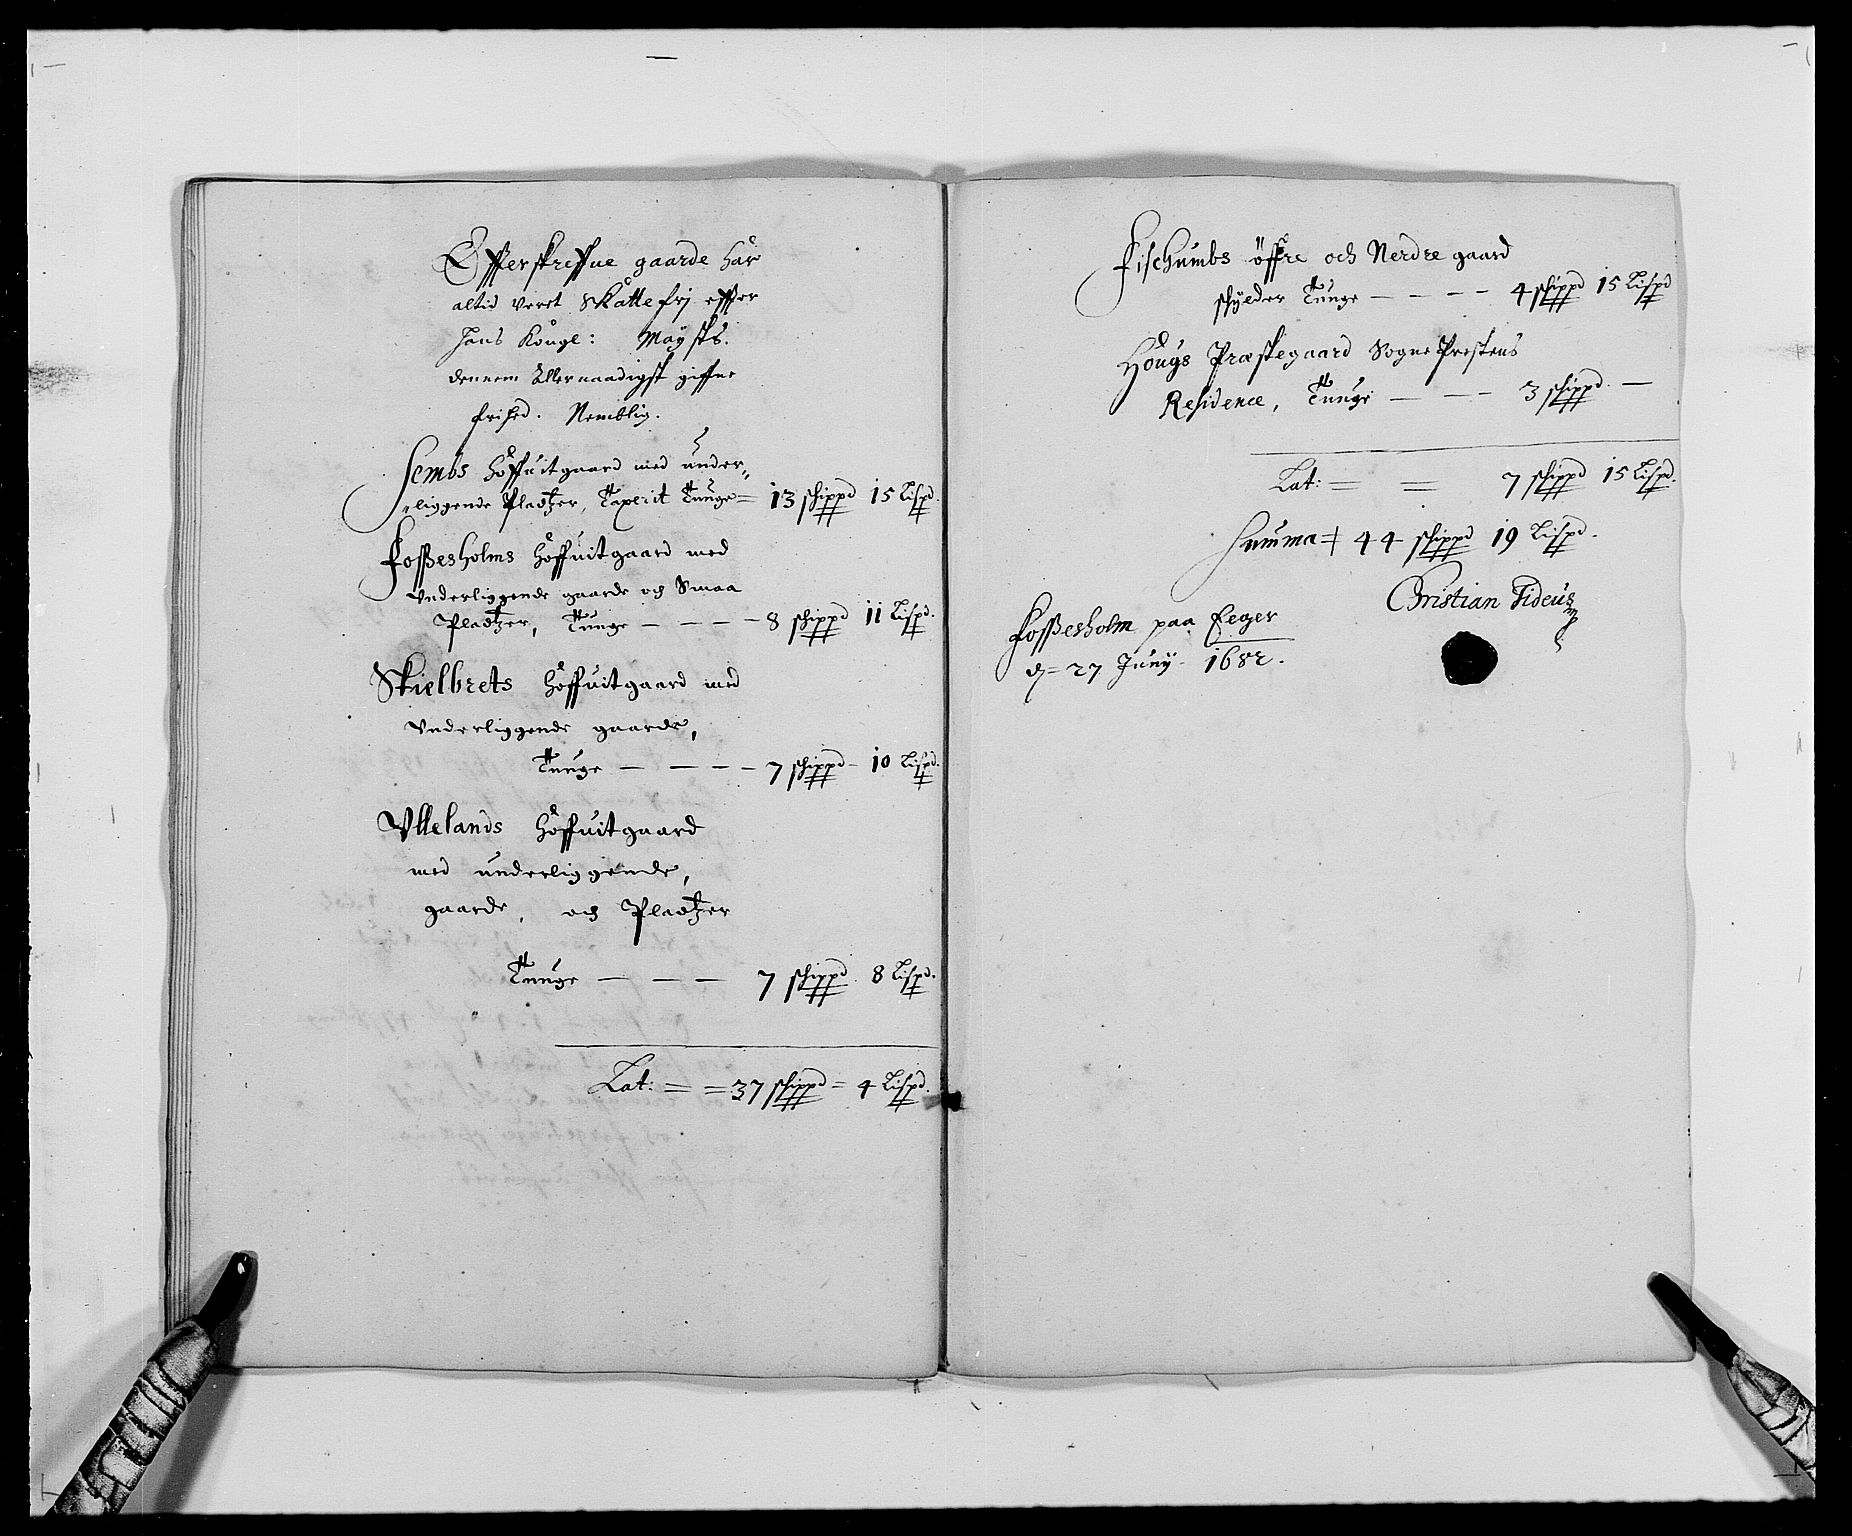 Effterskreffne gaarde har
altid veret Skattefrj effter
Hans Kongl: Maysts.
dennem Allernaadigst giffne
frihed. Nemblig.
Sembs Höffuitgaard med under,,
liggende Pladtzer, Taxerit Tunge = 13 schippd 15 Lispd.
Fossesholms Höffuitgaard med
Underliggende gaarde och Smaa
Pladtzer, Tunge — — — — 8 schippd 11 Lispd.
Skielbrets Höffuitgaard med
Underliggende gaarde,
Tunge — — — — 7 schippd — 10 Lispd.
Ullelands Höffuitgaard
med underliggende,
gaarde, och Pladtzer
Tunge — — — 7 schippd. 8 Lispd.
Lat: = = 37 schippd = 4 Lispd.
Fischumbs öffre och Nerdre gaard
schylder Tunge — — — — 4 schippd 15 Lispd
Hougs Præstegaard Sogne Prestens
Residence, Tunge — — — 3 schippd. —
Lat: = = 7 schippd 15 Lispd.
Summa = 44 schippd 19 Lispd.
Christian Tideus
Fossesholm paa Eeger
d= 27 Junij. 1682.